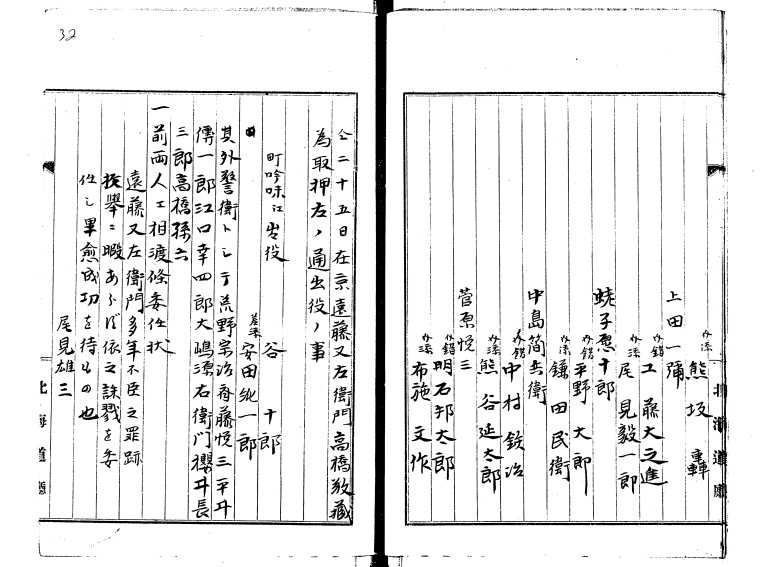 介添 熊坂 轟
上田一彌
介錯 工藤大之進
介添 尾見毅一郎
蛯子悪十郎
介錯 平野大郎
介添 鎌田民衛
中島簡兵衛
介錯 中村鉄治
介添 熊谷延太郎
菅原悦三
介錯 明石邦太郎
介添 布施文作
北海道廳
仝二十五日在京遠藤又左衛門高橋敬藏
為取押左ノ通出役ノ事
町吟味江出役
谷 十郎
安田純一郎
其外警衛トシテ荒野宗治斎藤悦三平井
傳一郎江口幸四郎大嶋源右衛門櫻井長
三郎高橋孫六
一前両人エ相渡條委任状
遠藤又左衛門多年不臣之罪跡
枚舉ニ暇あらず依之誅戮を委
任し畢愈成功を待もの也
尾見雄三
北海道廳
32